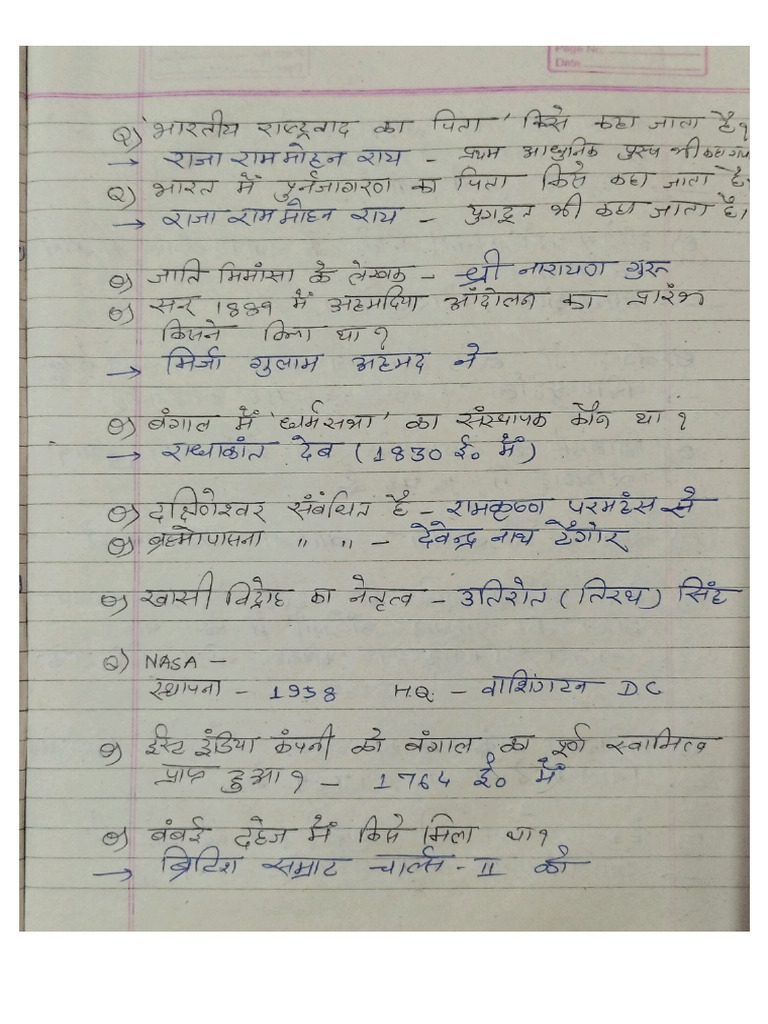 Page No.
Date
Q) 'भारतीय राष्ट्रवाद का पिता' किसे कहा जाता है?
→ राजा राममोहन राय - प्रथम आधुनिक पुरुष भी कहा गया
Q) भारत में पुर्नजागरण का पिता किसे कहा जाता है?
→ राजा राममोहन राय - युगदूत भी कहा जाता है।
Q) जाति मिमांसा के लेखक - श्री नारायण गुरू
Q) सन् 1889 में अहमदिया आंदोलन का प्रारंभ
किसने किया था?
→ मिर्जा गुलाम अहमद ने
Q) बंगाल में 'धर्मसभा' का संस्थापक कौन था?
→ राधाकांत देब (1830 ई० में)
Q) दक्षिणेश्वर संबंधित है - रामकृष्ण परमहंस से
Q) ब्रह्मोपासना " " - देवेन्द्र नाथ टैगोर
Q) खासी विद्रोह का नेतृत्व - उतिरोत (तिरथ) सिंह
Q) NASA -
स्थापना - 1958 H.Q. - वाशिंगटन DC
Q) ईस्ट इंडिया कंपनी को बंगाल का पूर्ण स्वामित्व
प्राप्त हुआ? - 1764 ई० में
Q) बंबई दहेज में किसे मिला था?
→ ब्रिटिश सम्राट चार्ल्स - II को